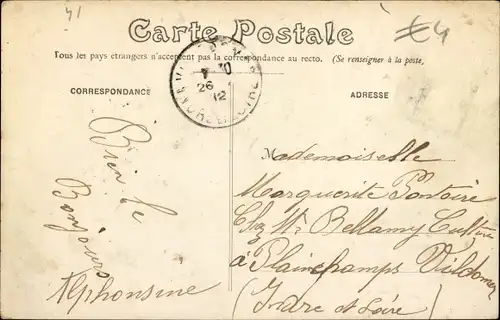 41
Carte Postale
€4
Tous les pays étrangers n'acceptent pas la correspondance au recto. (Se renseigner à la poste,
CORRESPONDANCE
ADRESSE
26
12
INDRE-ET-LOIRE
Bien le
Bonjour
Alphonsine
Mademoiselle
Marguerite
Chez Mr Bellamy
à Plainchamps
(Indre et Loire)